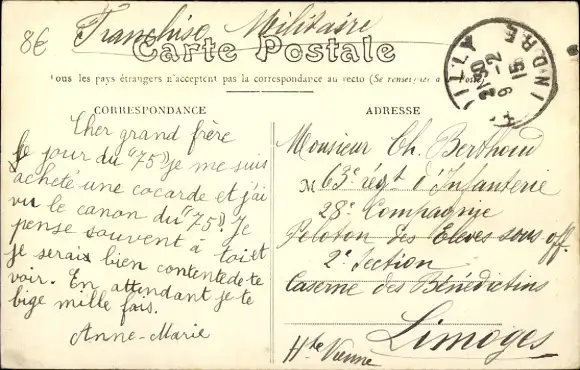 8€
Franchise Militaire
Carte Postale
Tous les pays étrangers n'acceptent pas la correspondance au recto (Se renseigner à la Poste)
CORRESPONDANCE
Cher grand frère
le jour du "75" je me suis
acheté une cocarde et j'ai
vu le canon du "75". Je
pense souvent à toi et
je serais bien contente de te
voir. En attendant je te
bige mille fois.
Anne-Marie
ADRESSE
Monsieur Ch. Berthoud
M 63e régt d'Infanterie
28e Compagnie
Peloton des Eleves sous off.
2e Section
Caserne des Bénédictins
Limoges
Hte Vienne
21 30
9 - 2
15
INDRE